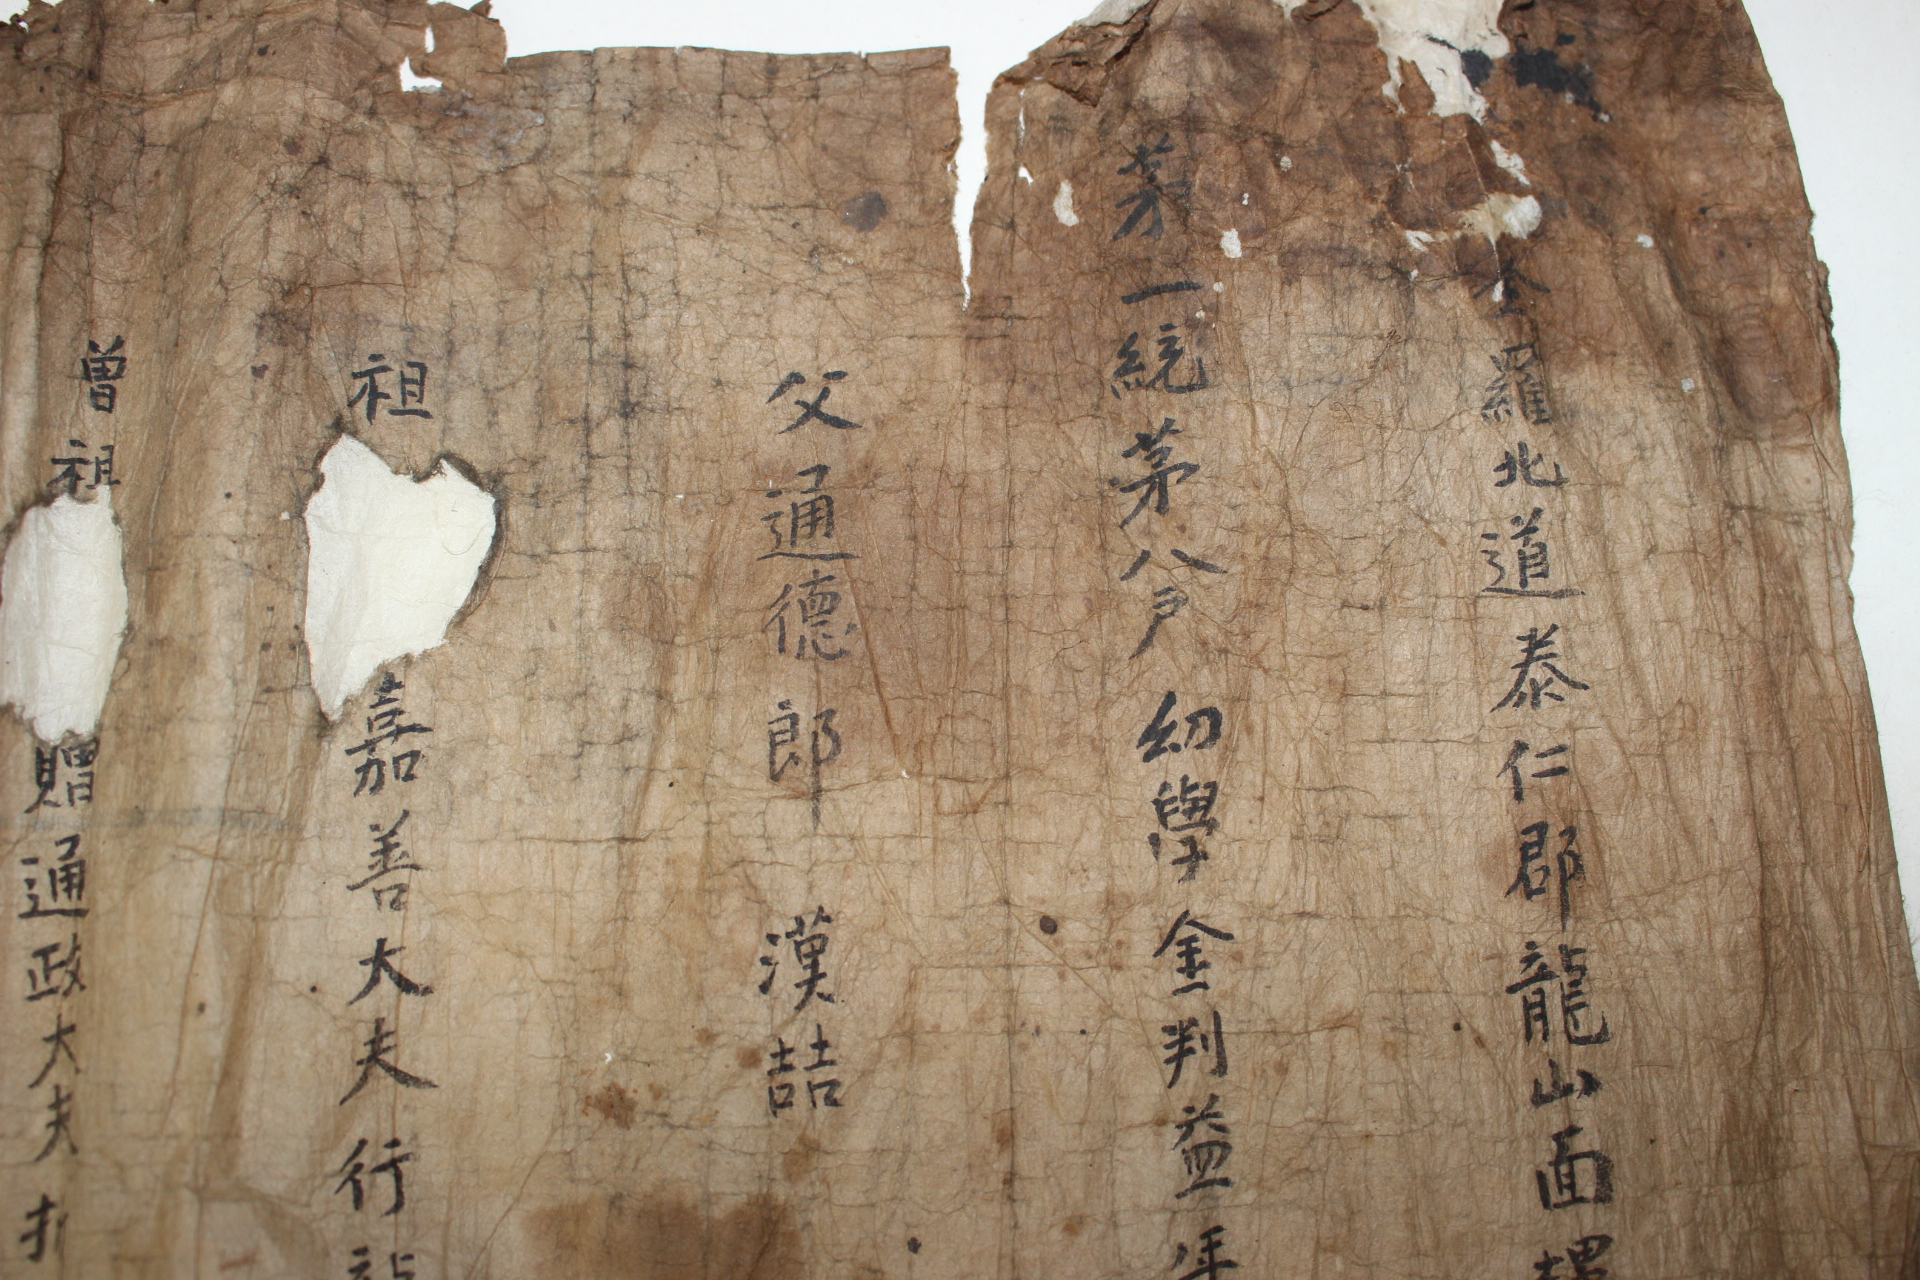 全羅北道泰仁郡龍山面
茅一統茅八戶 幼學金判益年
父通德郎 漢喆
祖 嘉善大夫行
曾祖 贈通政大夫